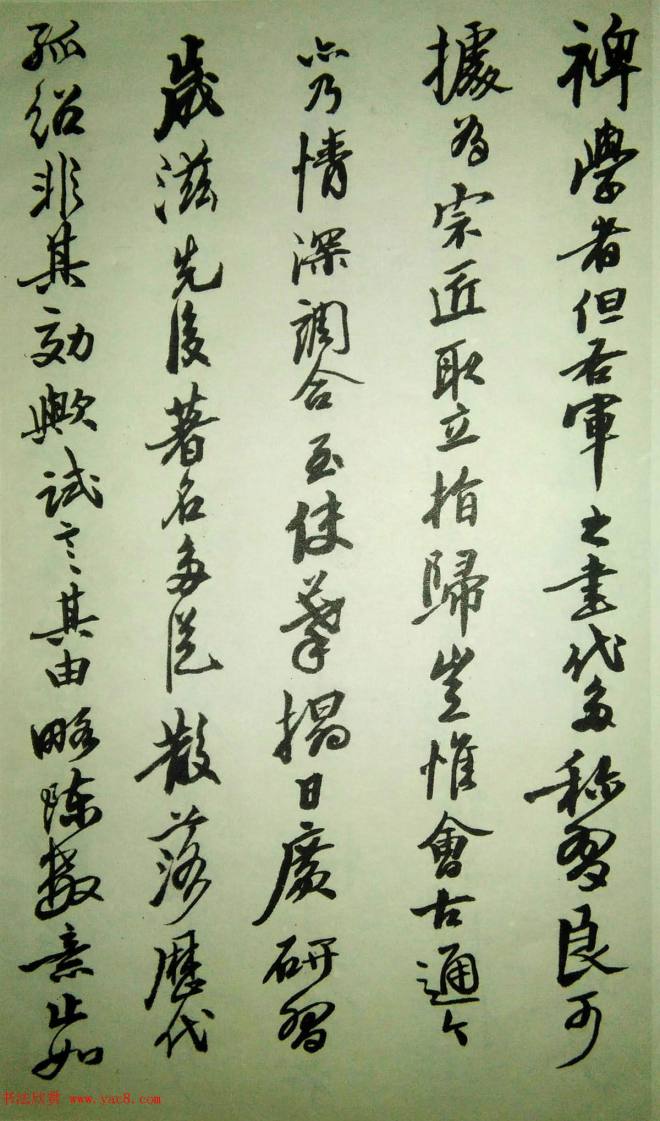 裨學者但右軍之書代多称習良可
據為宗匠取立指歸豈惟會古通今
亦乃情深調合至使摹搨日廣研習
歲滋先後著名多從散落歷代
孤紹非其効歟試言其由略陳數意止如
书法欣赏 www.yac8.com